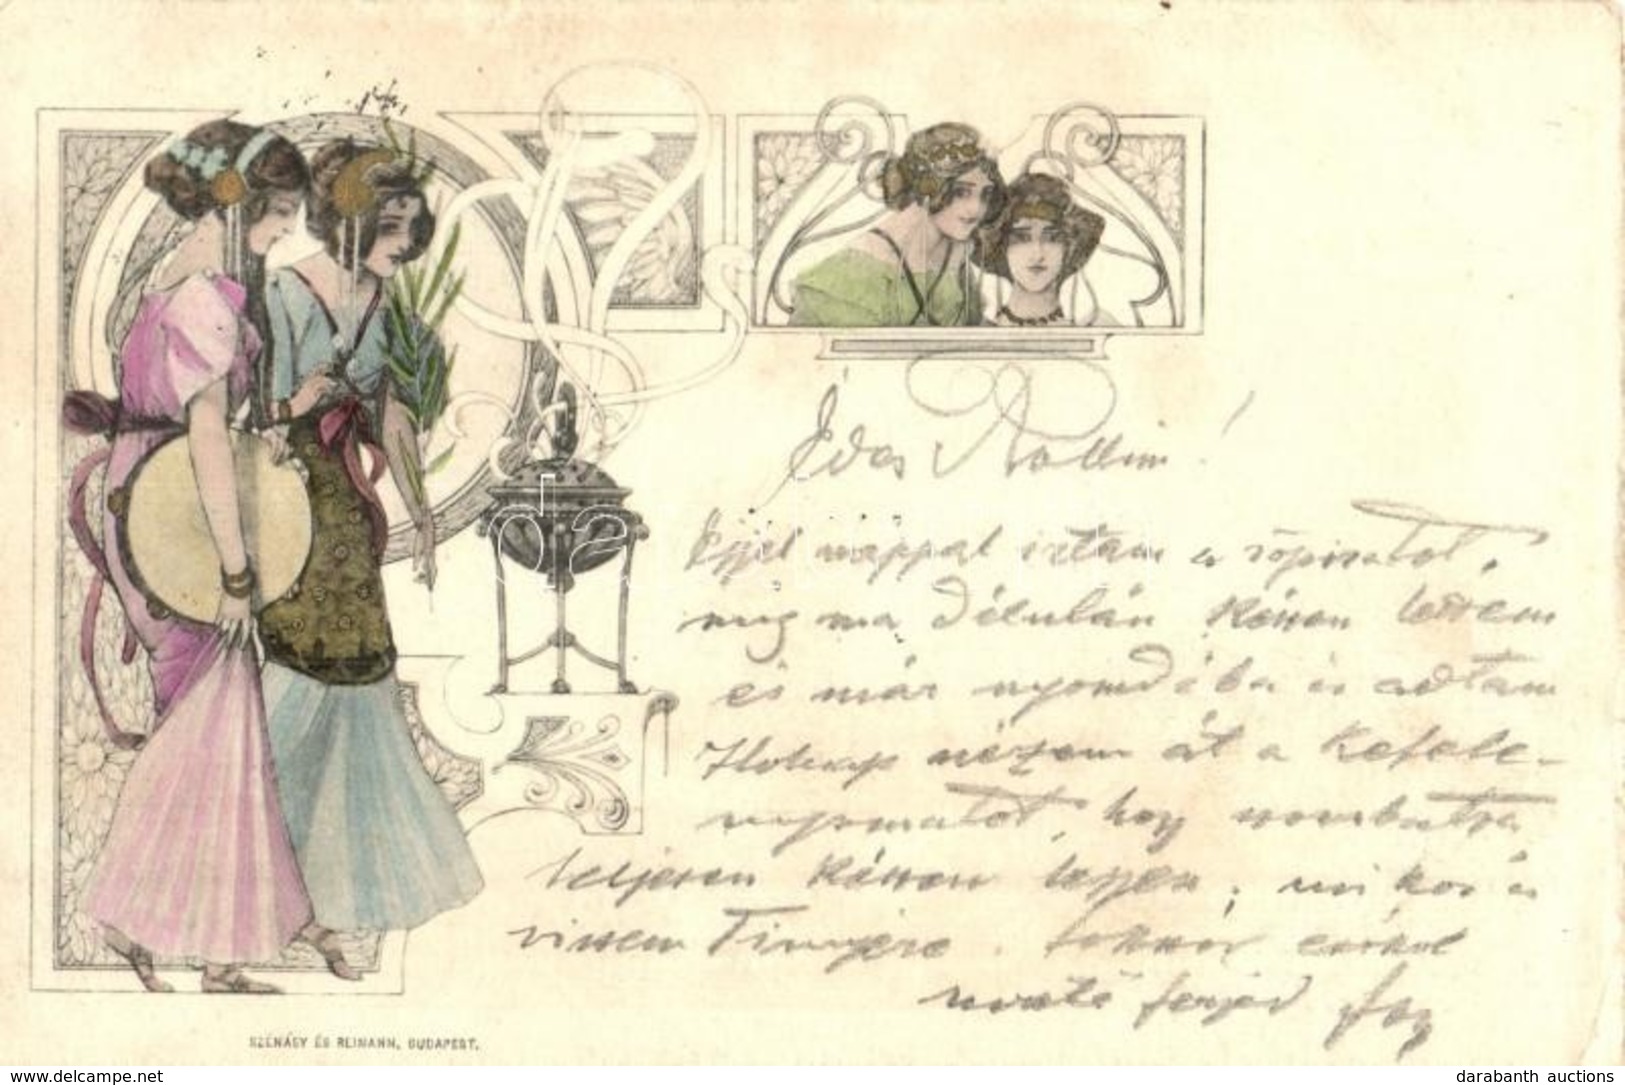 Édes
Éjjel nappal irtam a röpiratot,
míg ma délután készen lettem
és már nyomdába is adtam
Holnap nézem át a kefele-
nyomatot, hogy szombatra
teljesen készen legyen, mikor is
viszem Fiumére. Sokszor csókol
szerető férjed
da
SZÉNÁSY ÉS REIMANN, BUDAPEST.
www.delcampe.net
darabanth auctions